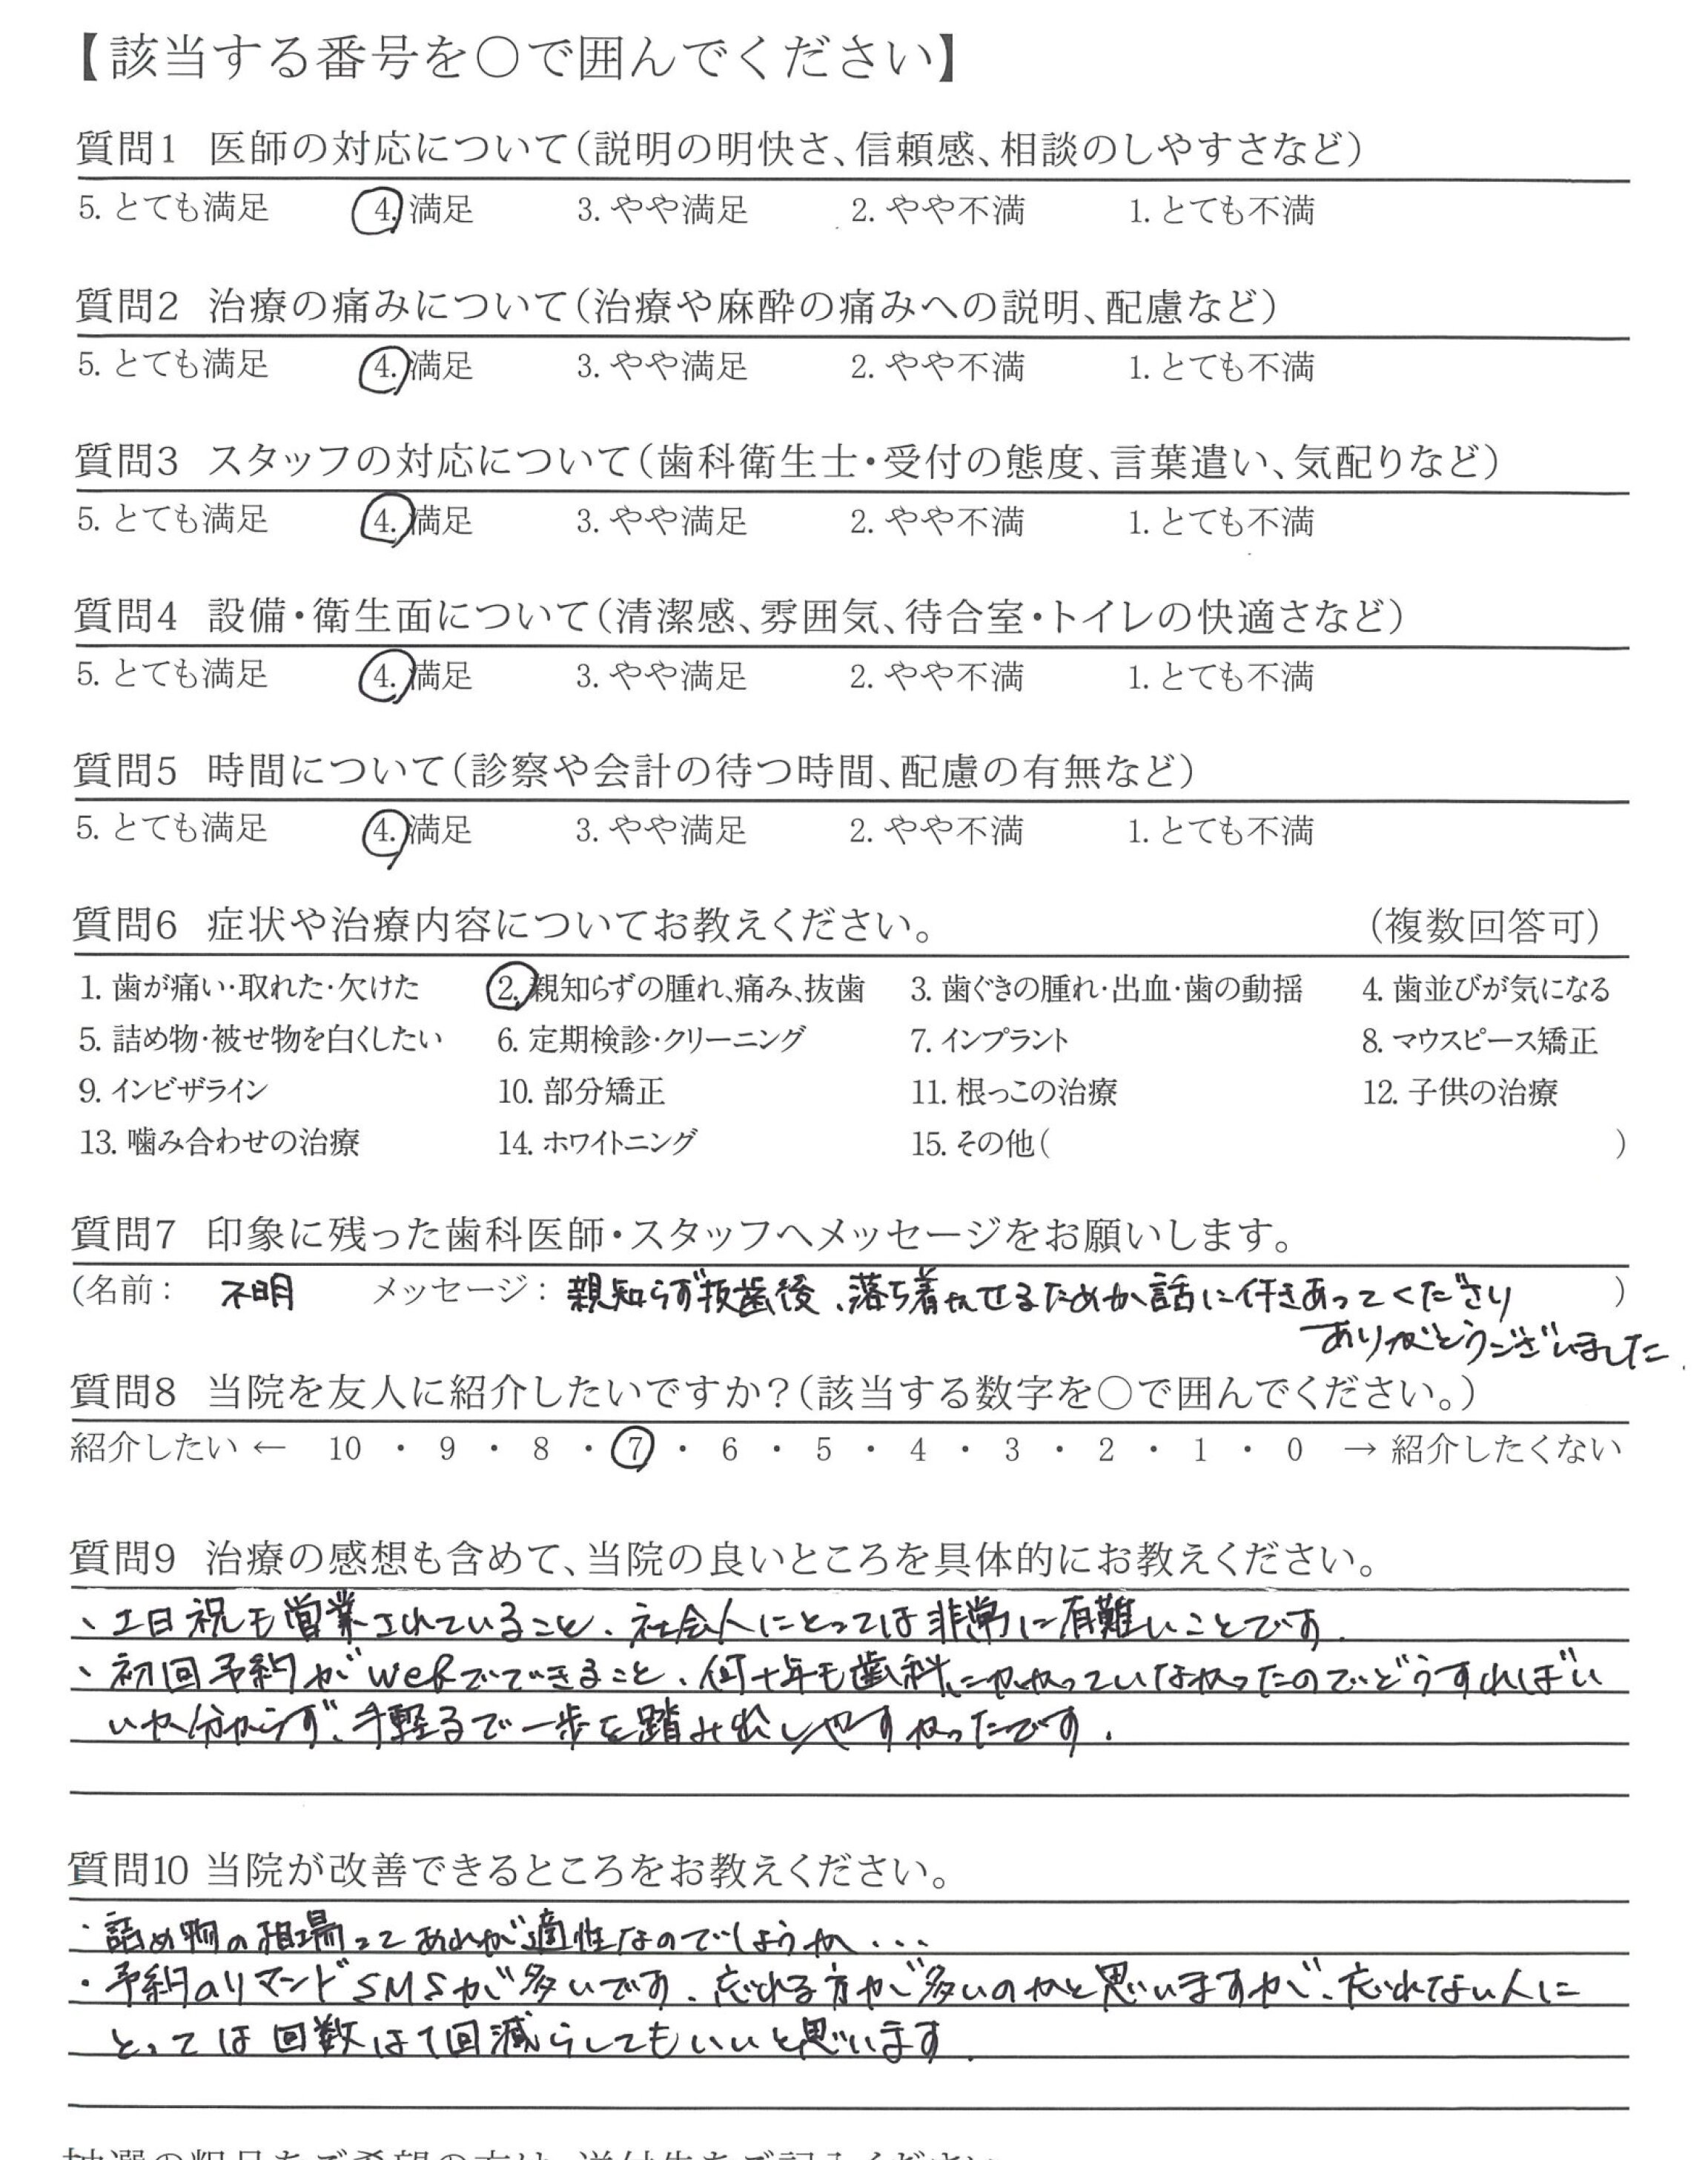 【該当する番号を○で囲んでください】
質問1 医師の対応について(説明の明快さ、信頼感、相談のしやすさなど)
5. とても満足 4. 満足 3. やや満足 2. やや不満 1. とても不満
質問2 治療の痛みについて(治療や麻酔の痛みへの説明、配慮など)
5. とても満足 4. 満足 3. やや満足 2. やや不満 1. とても不満
質問3 スタッフの対応について(歯科衛生士・受付の態度、言葉遣い、気配りなど)
5. とても満足 4. 満足 3. やや満足 2. やや不満 1. とても不満
質問4 設備・衛生面について(清潔感、雰囲気、待合室・トイレの快適さなど)
5. とても満足 4. 満足 3. やや満足 2. やや不満 1. とても不満
質問5 時間について(診察や会計の待つ時間、配慮の有無など)
5. とても満足 4. 満足 3. やや満足 2. やや不満 1. とても不満
質問6 症状や治療内容についてお教えください。 (複数回答可)
1. 歯が痛い・取れた・欠けた 2. 親知らずの腫れ、痛み、抜歯 3. 歯ぐきの腫れ・出血・歯の動揺 4. 歯並びが気になる
5. 詰め物・被せ物を白くしたい 6. 定期検診・クリーニング 7. インプラント 8. マウスピース矯正
9. インビザライン 10. 部分矯正 11. 根っこの治療 12. 子供の治療
13. 噛み合わせの治療 14. ホワイトニング 15. その他( )
質問7 印象に残った歯科医師・スタッフへメッセージをお願いします。
(名前: 不明 メッセージ: 親知らず抜歯後、落ち着かせるためか話に付きあってくださり )
ありがとうございました.
質問8 当院を友人に紹介したいですか?(該当する数字を○で囲んでください。)
紹介したい ← 10 ・ 9 ・ 8 ・ 7 ・ 6 ・ 5 ・ 4 ・ 3 ・ 2 ・ 1 ・ 0 → 紹介したくない
質問9 治療の感想も含めて、当院の良いところを具体的にお教えください。
、土日祝も営業されていること、社会人にとっては非常に有難いことです.
、初回予約がWebでできること、何十年も歯科にかかっていなかったのでどうすればい
いか分からず、手軽るで一歩を踏み出しやすかったです.
質問10 当院が改善できるところをお教えください。
・詰め物の相場ってあれが適性なのでしょうか...
・予約のリマンドSMSが多いです. 忘れる方が多いのかと思いますが、忘れない人に
とっては回数は1回減らしてもいいと思います.
抽選の粗品をご希望の方は、送付先をご記入ください。